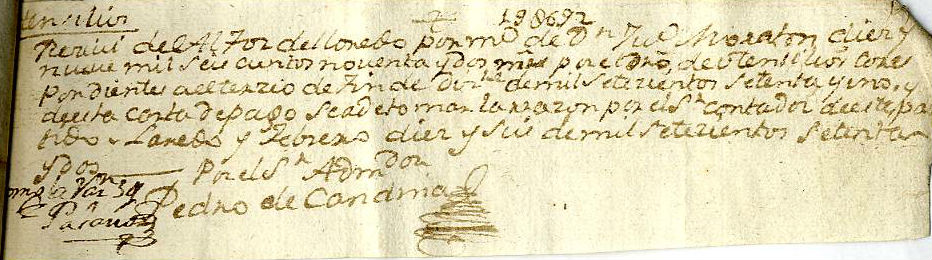 Utensilios 19869 2
Reciui del Al For de Loredo por mº de Dn Juº Moraton diez y
nueve mil seis cientos noventa y dos mrs por el dro de utensilios corres
pondientes al terzio de fin de Dizre de mil setezientos setenta y uno, y
de esta carta de pago se ade tomar la razon por el Sr Contador de este par
tido. Laredo y Febrero diez y seis de mil setezientos setenta
y dos
Por el Sr Admor
Pedro de Candina